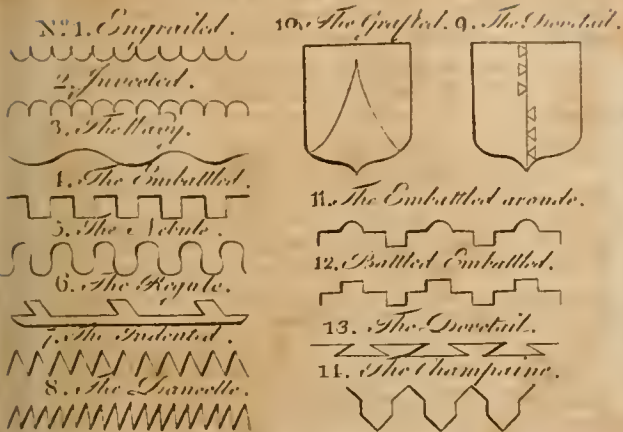 No. 1. Engrailed.
2. Inveeted.
3. The Wavy.
4. The Embattled.
5. The Nebule.
6. The Regule.
7. The Indented.
8. The Dancette.
10. The Grafted. 9. The Dovetail.
11. The Embattled aronde.
12. Battled Embattled.
13. The Dovetail.
14. The Champaine.